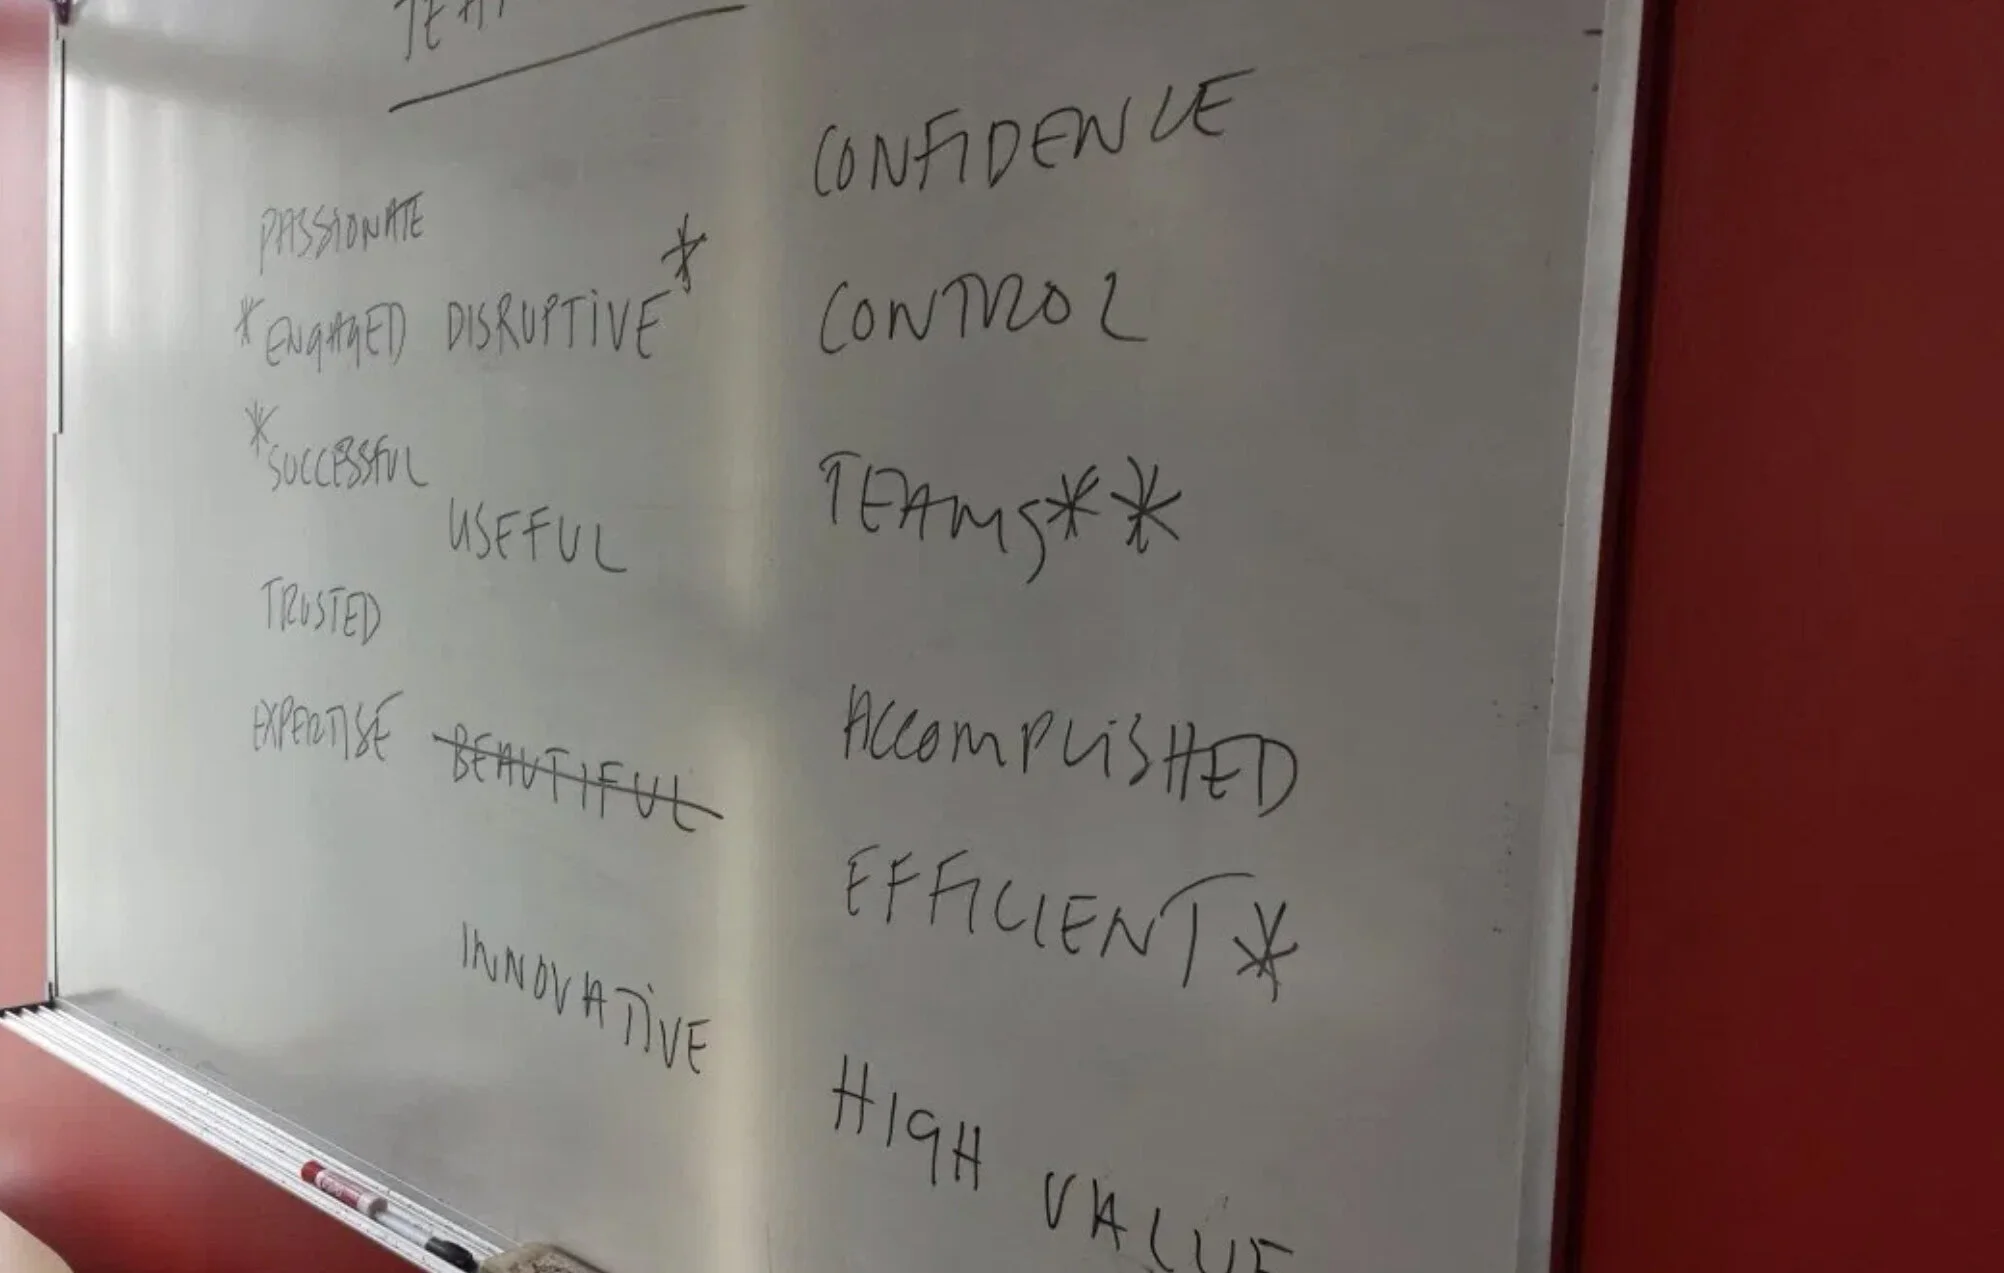 PASSIONATE
*ENGAGED DISRUPTIVE*
*SUCCESSFUL
USEFUL
TRUSTED
EXPERTISE BEAUTIFUL
INNOVATIVE
CONFIDENCE
CONTROL
TEAMS**
ACCOMPLISHED
EFFICIENT*
HIGH VALUE